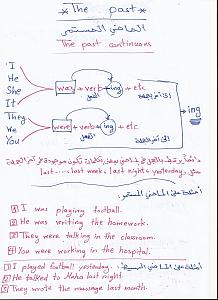 * The past *
الماضي المستمر
The past continuous
I
He
She
It
was + verb + ing + etc
الفعل
إلى آخر الجملة
ing
They
We
You
were + verb + ing + etc
الفعل
إلى آخر الجملة
last..., last week, last night, yesterday
أمثلة على الماضي المستمر
1 I was playing football.
2 He was writing the homework.
3 They were talking in the classroom.
4 You were working in the hospital.
1 I played football yesterday.
2 He talked to Maha last night.
3 They wrote the message last month.